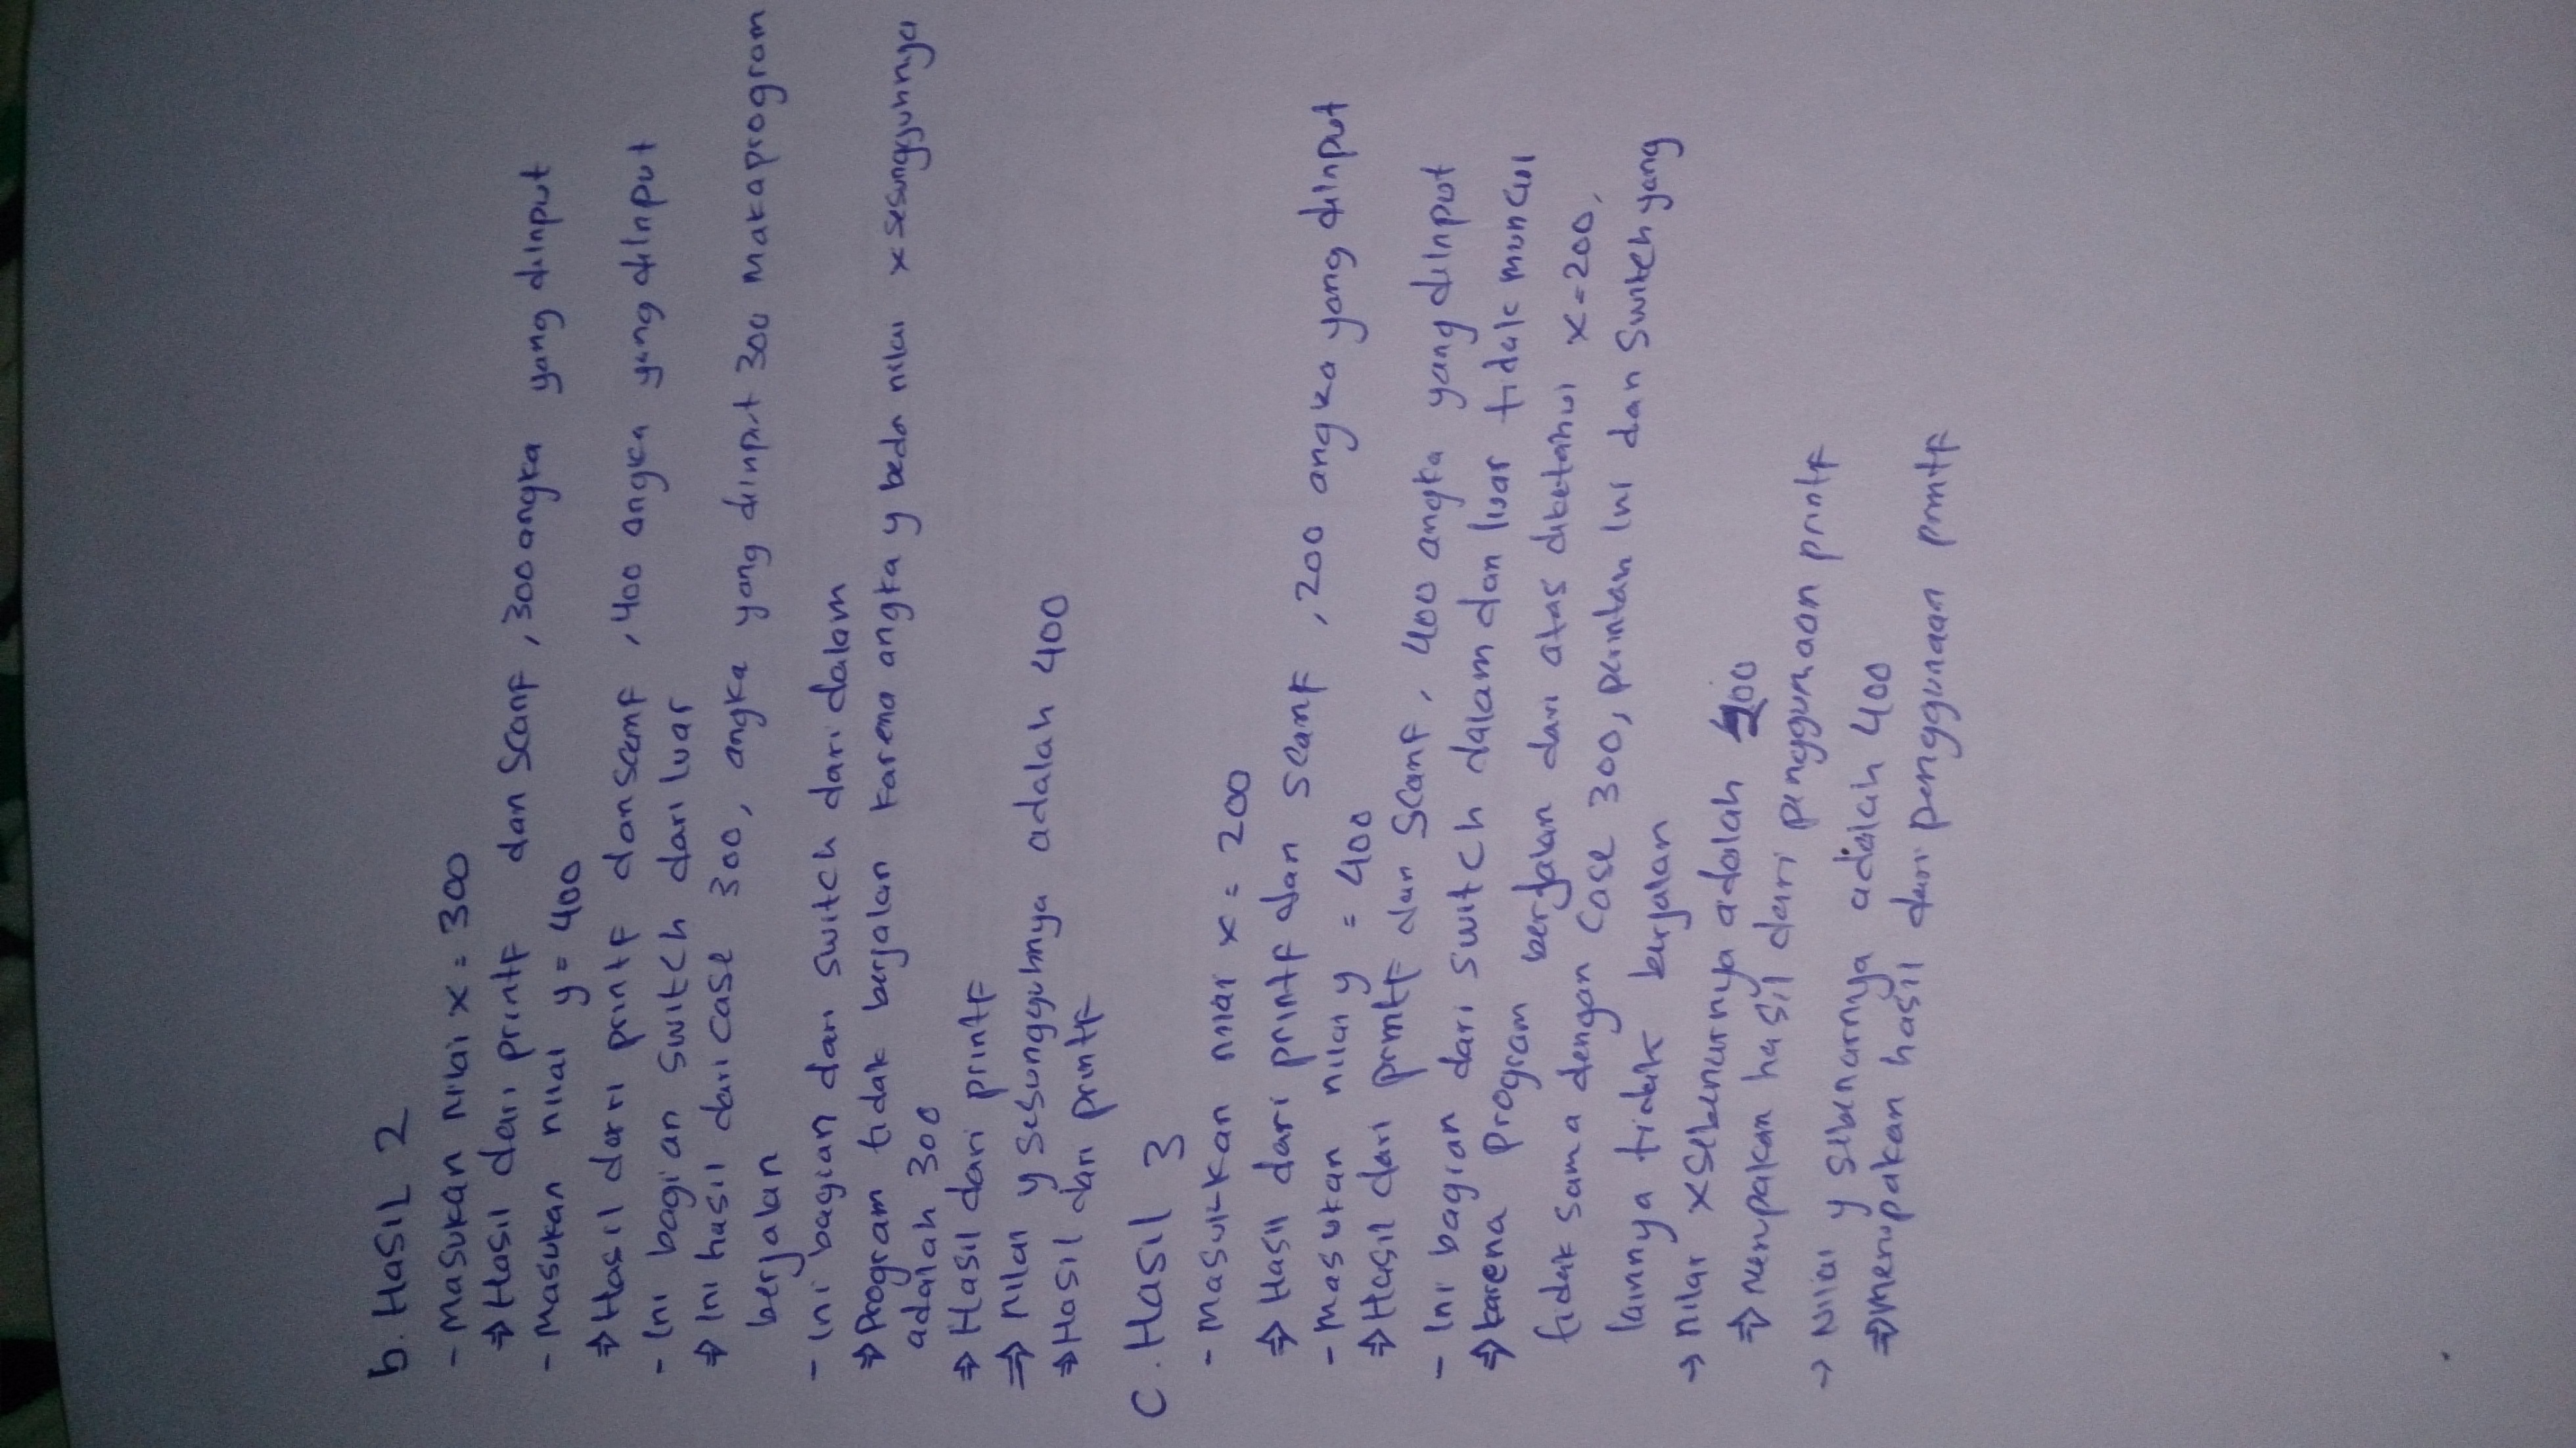 b. HASIL 2
- Masukan nilai x = 300
⇒ Hasil dari printf dan Scanf, 300 angka yang diinput
- Masukan nilai y = 400
⇒ Hasil darri printf dan scanf, 400 angka yang diinput
- Ini bagian switch dari luar
⇒ Ini hasil dari case 300, angka yang diinput 300 maka program
berjalan
- Ini bagian dari switch dari dalam
⇒ Program tidak berjalan karena angka y beda nilai x sesungguhnya
adalah 300
⇒ Hasil dari printf
⇒ Nilai y sesungguhnya adalah 400
⇒ Hasil dari printf
C. Hasil 3
- Masukkan nilai x = 200
⇒ Hasil dari printf dan scanf, 200 angka yang diinput
- Masukan nilai y = 400
⇒ Hasil dari printf dan Scanf, 400 angka yang diinput
- Ini bagian dari switch dalam dan luar tidak muncul
⇒ karena program berjalan dari atas diketahui x = 200,
tidak sama dengan case 300, perintah ini dan Switch yang
lainnya tidak berjalan
→ Nilai x sebenarnya adalah 200
⇒ merupakan hasil dari penggunaan printf
→ Nilai y sebenarnya adalah 400
⇒ merupakan hasil dari penggunaan printf